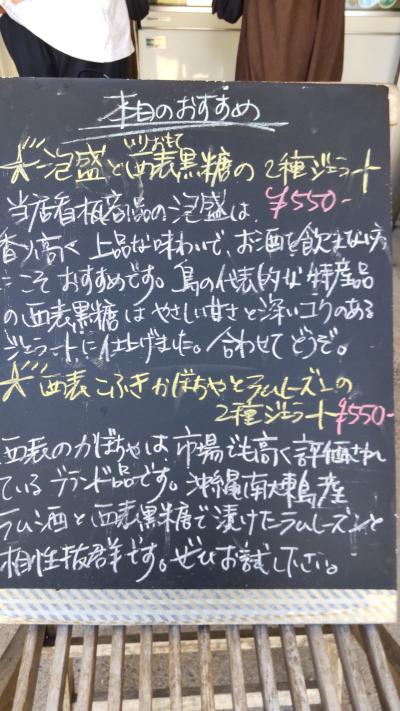 本日のおすすめ
いりおもて
★泡盛と西表黒糖の2種ジェラート
当店看板商品の泡盛は、¥550-
香り高く上品な味わいで、お酒を飲まない方
こそおすすめです。島の代表的な特産品
の西表黒糖はやさしい甘さと深いコクのある
ジェラートに仕上げました。合わせてどうぞ。
★西表こふきかぼちゃとラムレーズンの
2種ジェラート¥550-
西表のかぼちゃは市場でも高く評価され
ているブランド品です。沖縄南大東島産
ラム酒と西表黒糖で漬けたラムレーズンと
相性抜群です。ぜひお試し下さい。